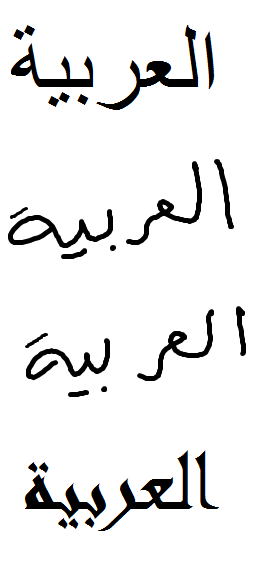 العربية
العربية
العربية
العربية